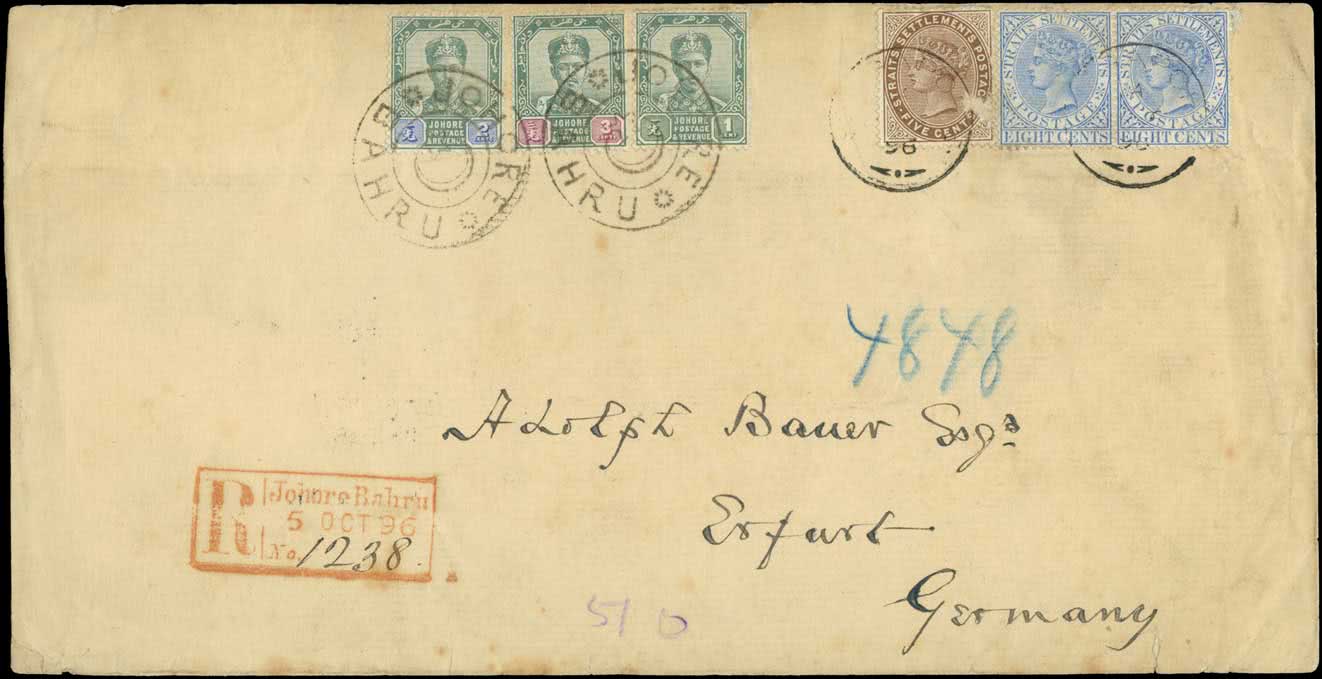 JOHORE POSTAGE & REVENUE 2 CENTS
JOHORE POSTAGE & REVENUE 3 CENTS
JOHORE POSTAGE & REVENUE 1 CENT
STRAITS SETTLEMENTS POSTAGE
FIVE CENTS
STRAITS SETTLEMENTS
POSTAGE
EIGHT CENTS
STRAITS SETTLEMENTS
POSTAGE
EIGHT CENTS
JOHORE BAHRU
JOHORE BAHRU
96
4848
Adolph Bauer Esqr
Erfurt
Germany
R Johore Bahru
5 OCT 96
No. 1238.